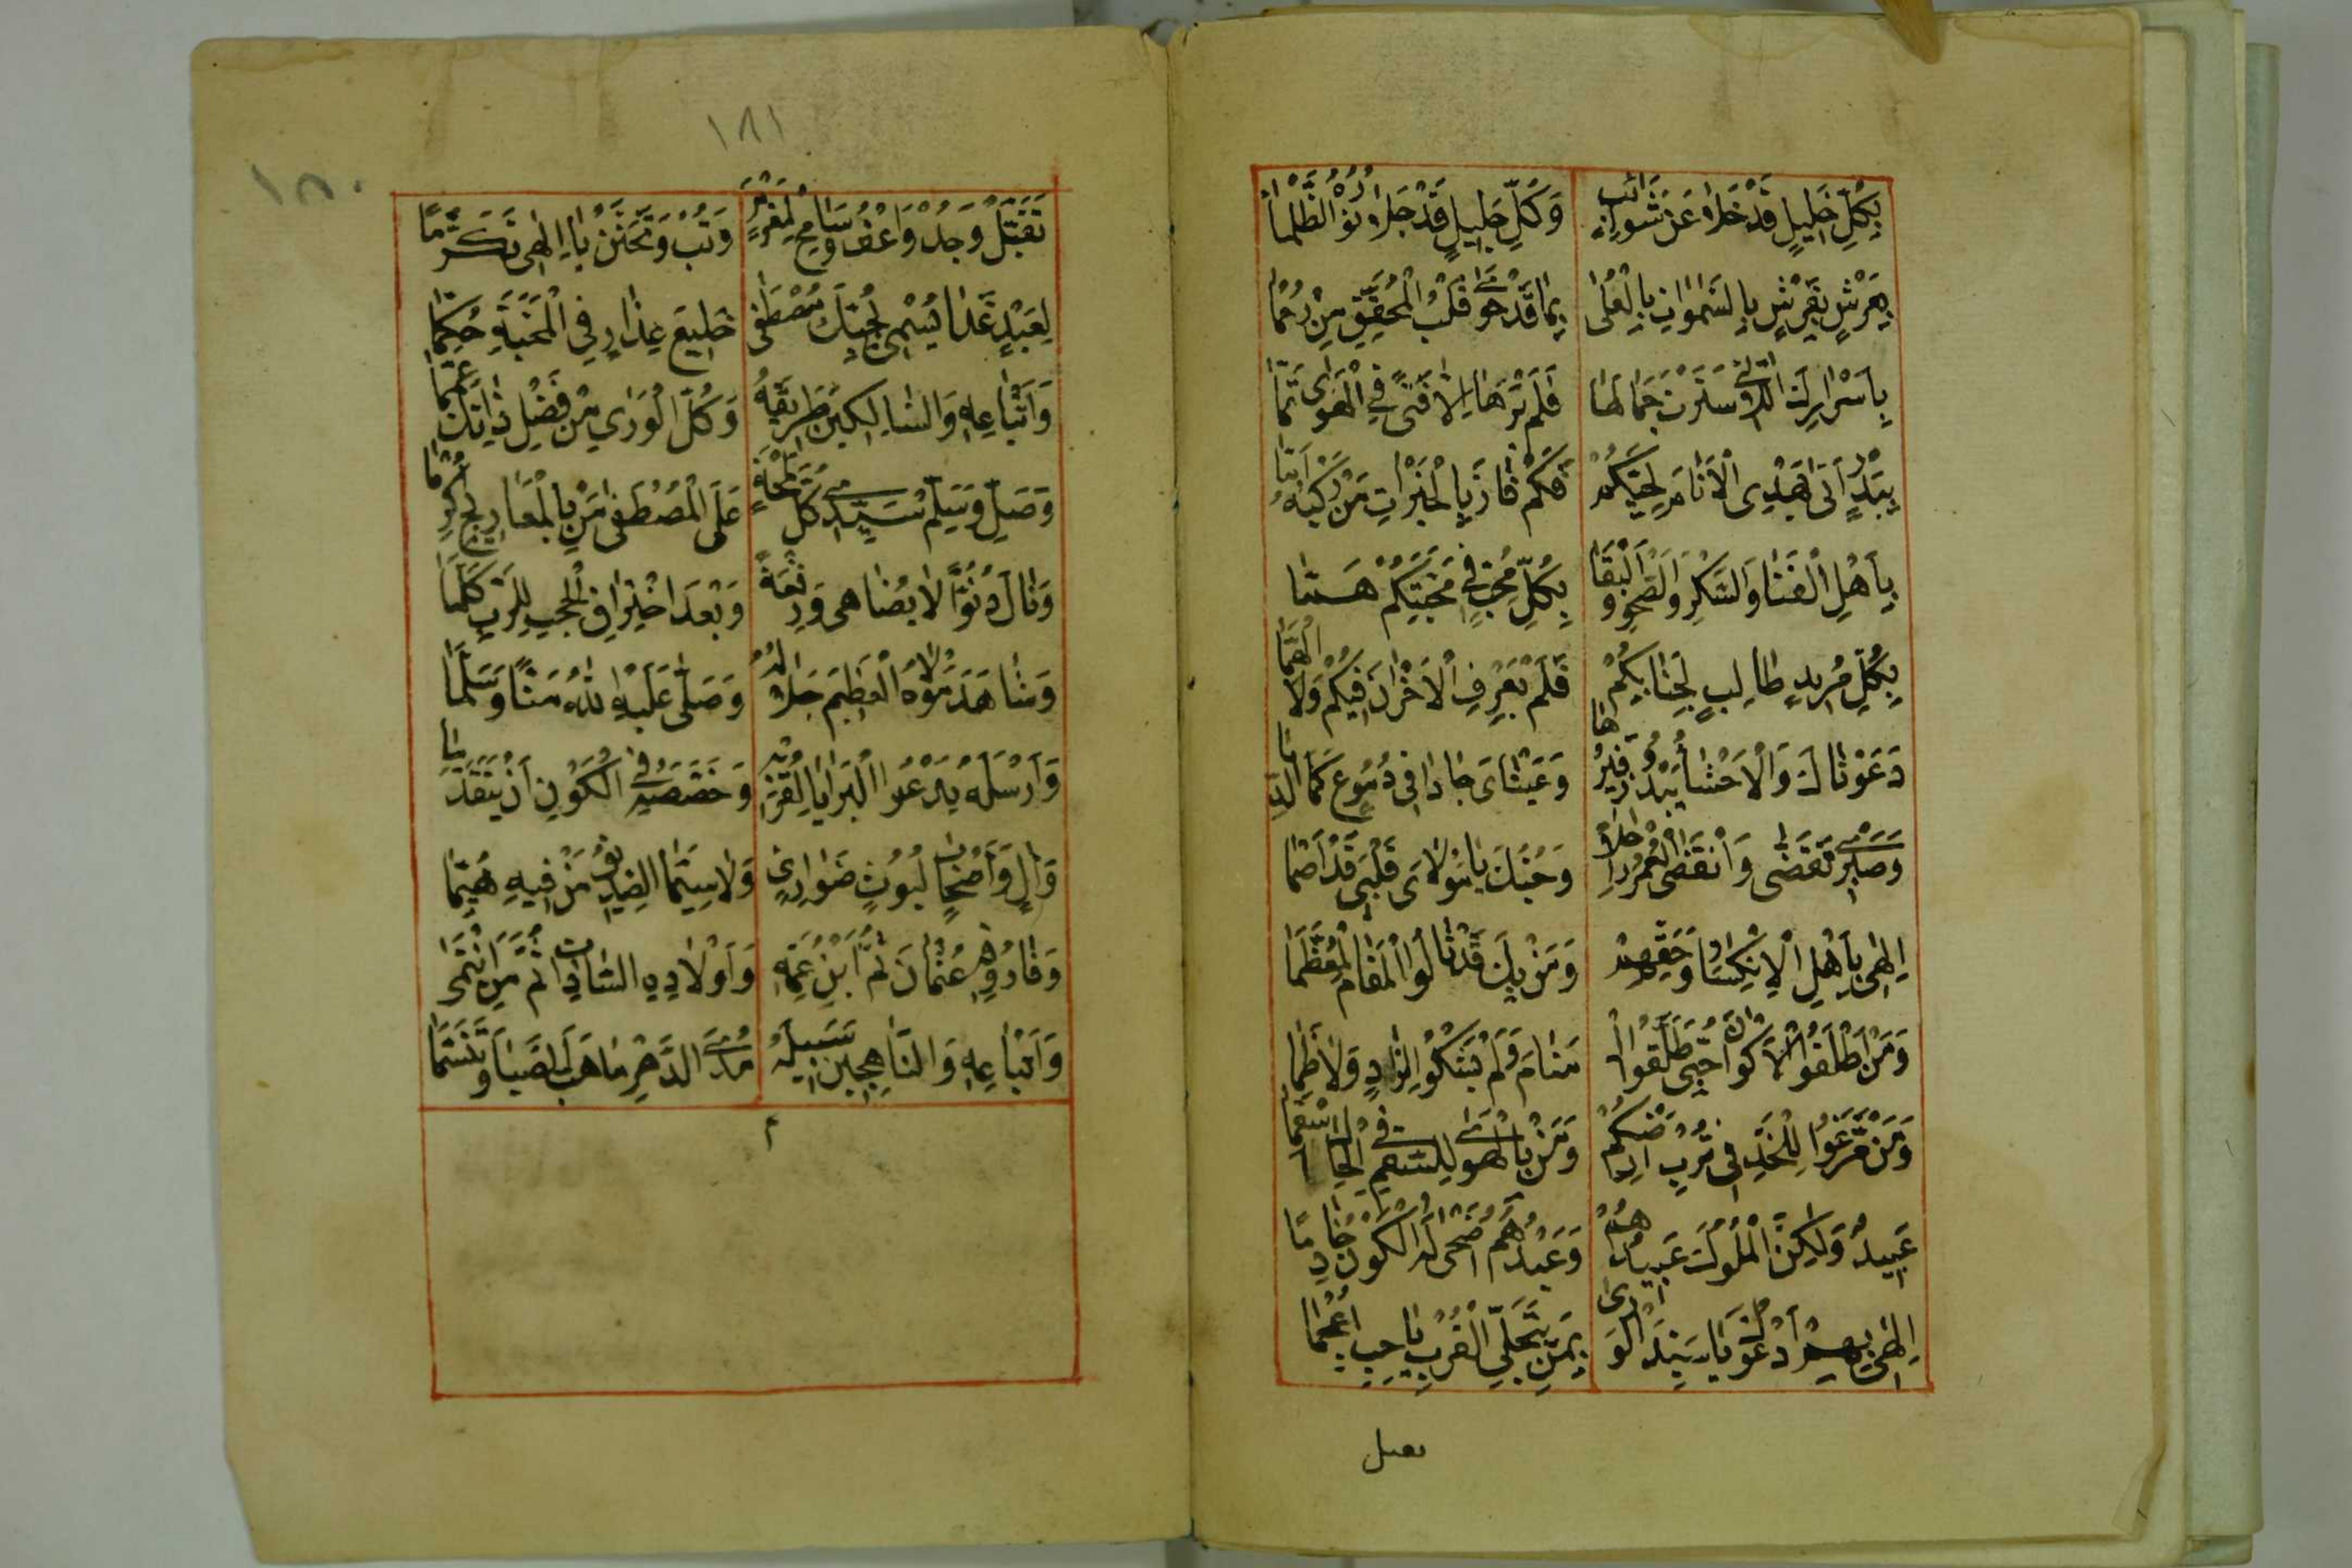 بِكُلِّ خَلِيلٍ قَدْ خَلَا عَنْ شَوَائِبٍ وَكُلِّ جَلِيلٍ قَدْ جَلَا نُورُهُ الظُّلْمَا
بِعَرْشٍ بِفَرْشٍ بِالسَّمٰوَاتِ بِالْعُلٰى بِمَا قَدْ حَوٰى قَلْبُ الْمُحَقِّقِ مِنْ رُحْمَا
بِأَسْرَارِكَ اللَّاتِي سَتَرْتَ جَمَالَهَا فَلَمْ يَرَهَا إِلَّا فَتًى فِي الْهَوٰى تَمَّا
بِبَدْرٍ أَتٰى يَهْدِي الْأَنَامَ لِحَيِّكُمْ فَكَمْ فَازَ بِالْخَيْرَاتِ مَنْ رَكْبَهُ أَمَّا
بِأَهْلِ الْفَنَا وَالسُّكْرِ وَالصَّحْوِ وَالْبَقَا بِكُلِّ مُحِبٍّ فِي مَحَبَّتِكُمْ هَمَّا
بِكُلِّ مُرِيدٍ طَالِبٍ لِجَنَابِكُمْ فَلَمْ يَعْرِفِ الْأَحْزَانَ فِيكُمْ وَلَا الْهَمَّا
دَعَوْنَاكَ وَالْأَحْشَا يَبْدُو زَفِيرُهَا وَعَيْنَايَ جَادَا فِي دُمُوعٍ كَمَا الدِّيمَا
وَصَبْرِي تَقَضّٰى وَانْقَضَى الْعُمْرُ رَاحِلًا وَحُبُّكَ يَا مَوْلَايَ قَلْبِي قَدْ أَصْمَا
إِلٰهِي بِأَهْلِ الْاِنْكِسَارِ وَحَقِّهِمْ وَمَنْ بِكَ قَدْ نَالُوا الْمَقَامَ الْمُعَظَّمَا
وَمَنْ أَطْلَقُوا الْأَكْوَانَ حَتّٰى طَلَّقُوا الْـ مَنَامَ وَلَمْ يَشْكُوا لِزَادٍ وَلَا ظَمَا
وَمَنْ مَرَّغُوا لِلْخَدِّ فِي تُرْبِ أَرْضِكُمْ وَمَنْ بِالْهَوٰى لِلسُّقْمِ فِي الْحَالِ أَسْقَمَا
عَبِيدٌ وَلٰكِنَّ الْمُلُوكَ عَبِيدُهُمْ وَعَبْدُهُمْ أَضْحٰى لَهُ الْكَوْنُ خَادِمًا
إِلٰهِي بِهِمْ أَدْعُوكَ يَا سَيِّدَ الْوَرٰى بِمَنْ بِتَجَلِّي الْقُرْبِ يَا حِبُّ أُعْجِمَا
تقبل
١٨١
١٨٠
تَقَبَّلْ وَجُدْ وَاعْفُ وَسَامِحْ لِمُغْرَمٍ وَتُبْ وَتَحَنَّنْ يَا إِلٰهِي تَكَرُّمًا
لِعَبْدٍ غَدَا يُسْمٰى لِحُبِّكَ مُصْطَفٰى خَلِيعَ عِذَارٍ فِي الْمَحَبَّةِ حُكِّمَا
وَأَتْبَاعِهِ وَالسَّالِكِينَ طَرِيقَهُ وَكُلَّ الْوَرٰى مِنْ فَضْلِ ذَاتِكَ عَمِّمَا
وَصَلِّ وَسَلِّمْ سَيِّدِي كُلَّ لَمْحَةٍ عَلَى الْمُصْطَفٰى مَنْ بِالْمَعَارِجِ أُكْرِمَا
وَنَالَ دُنُوًّا لَا يُضَاهٰى وَرِفْعَةً وَبَعْدَ اخْتِرَاقِ الْحُجْبِ لِلرَّبِّ كَلَّمَا
وَشَاهَدَ مَوْلَاهُ الْعَظِيمَ جَلَالُهُ وَصَلّٰى عَلَيْهِ اللّٰهُ مَنًّا وَسَلَّمَا
وَأَرْسَلَهُ يَدْعُو الْبَرَايَا لِقُرْبِهِ وَخَصَّصَهُ فِي الْكَوْنِ أَنْ يَتَقَدَّمَا
وَآلٍ وَأَصْحَابٍ لُيُوثٍ ضَوَارِيٍ وَلَا سِيَّمَا الصِّدِّيقُ مَنْ فِيهِ هُيِّمَا
وَفَارُوقِهِمْ عُثْمَانَ ثُمَّ ابْنِ عَمِّهِ وَأَوْلَادِهِ السَّادَاتِ ثُمَّ مَنِ انْتَمٰى
وَأَتْبَاعِهِ وَالنَّاهِجِينَ سَبِيلَهُ مَدَى الدَّهْرِ مَا هَبَّ الصَّبَا وَتَنَسَّمَا
م